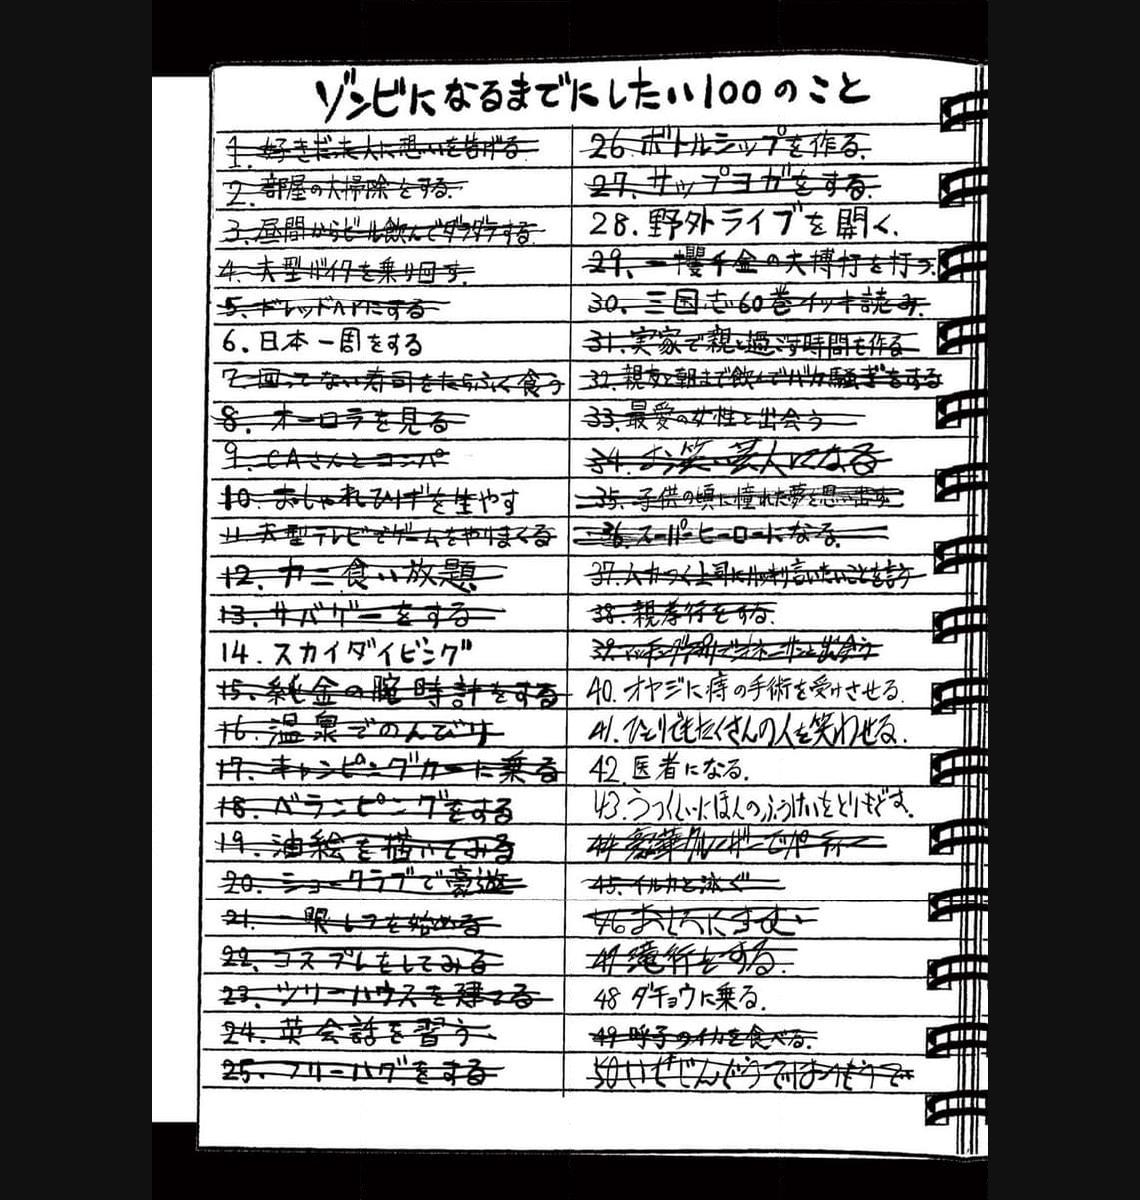 ゾンビになるまでにしたい100のこと
1. 好きだった人に想いを告げる
2. 部屋の大掃除をする
3. 昼間からビール飲んでダラダラする
4. 大型バイクを乗り回す
5. ドレッドヘアにする
6. 日本一周をする
7. 回ってない寿司をたらふく食う
8. オーロラを見る
9. CAさんとコンパ
10. おしゃれひげを生やす
11. 大型テレビでゲームをやりまくる
12. カニ食い放題
13. サバゲーをする
14. スカイダイビング
15. 純金の腕時計をする
16. 温泉でのんびり
17. キャンピングカーに乗る
18. ベランピングをする
19. 油絵を描いてみる
20. ショークラブで豪遊
21. 一眼レフを始める
22. コスプレをしてみる
23. ツリーハウスを建てる
24. 英会話を習う
25. フリーハグをする
26. ボトルシップを作る.
27. サップヨガをする.
28. 野外ライブを開く.
29. 一攫千金の大博打を打つ.
30. 三国志60巻イッキ読み.
31. 実家で親と過ごす時間を作る
32. 親友と朝まで飲んでバカ騒ぎをする
33. 最愛の女性と出会う
34. お笑い芸人になる
35. 子供の頃に憧れた夢を思い出す
36. スーパーヒーローになる.
37. ムカつく上司にハッキリ言いたいことを言う
38. 親孝行をする.
39. マッチングアプリでオネーサンと出会う
40. オヤジに痔の手術を受けさせる.
41. ひとりでもたくさんの人を笑わせる.
42. 医者になる.
43. うつくしいにほんのふうけいをとりもどす.
44 豪華クルーザーでパーティー
45. イルカと泳ぐ
46 おしろにすむ
47 滝行をする.
48 ダチョウに乗る.
49 呼子のイカを食べる.
50